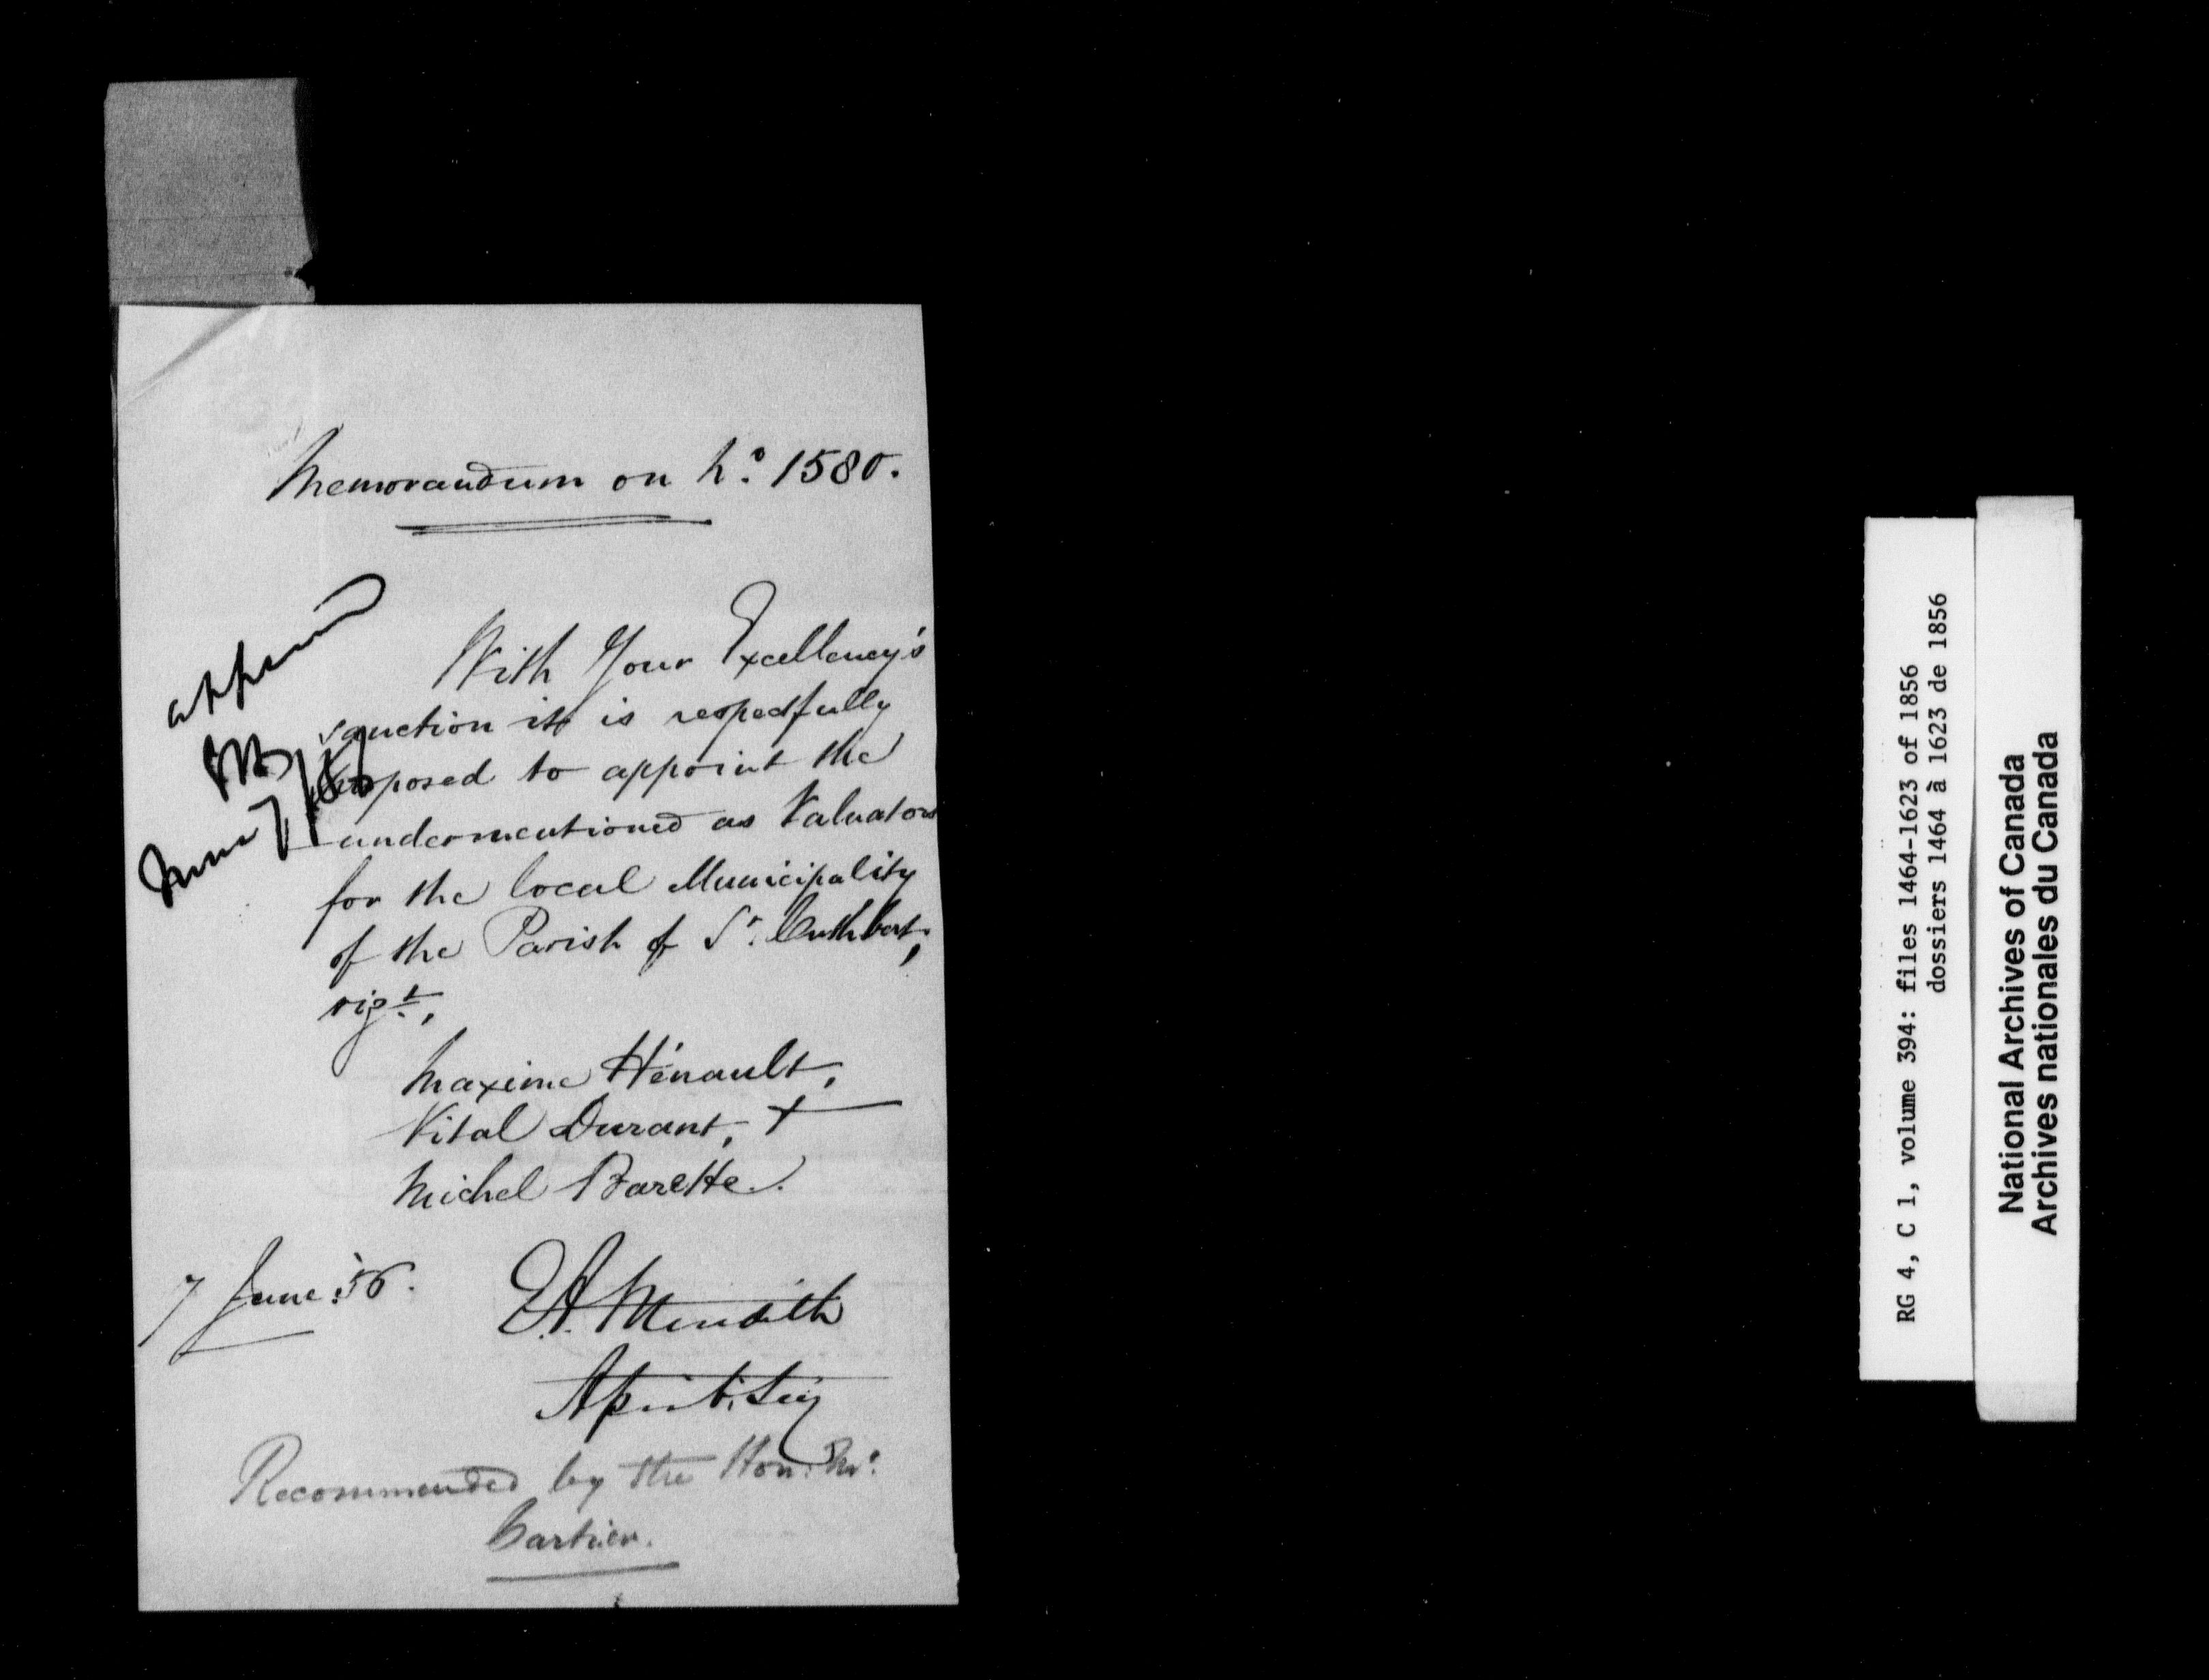 Memorandum on No. 1580.
With Your Excellency's
sanction it is respectfully
proposed to appoint the
undermentioned as Valuators
for the local Municipality
of the Parish of St. Cuthbert,
vizt.,
Maxime Hénault,
Vital Durant, +
Michel Barette.
7 June '56.
E.A. Meredith
Asst. Secy
Recommended by the Hon: Mr.
Cartier.
approved
June 7/56
RG 4, C 1, volume 394: files 1464-1623 of 1856
dossiers 1464 à 1623 de 1856
National Archives of Canada
Archives nationales du Canada